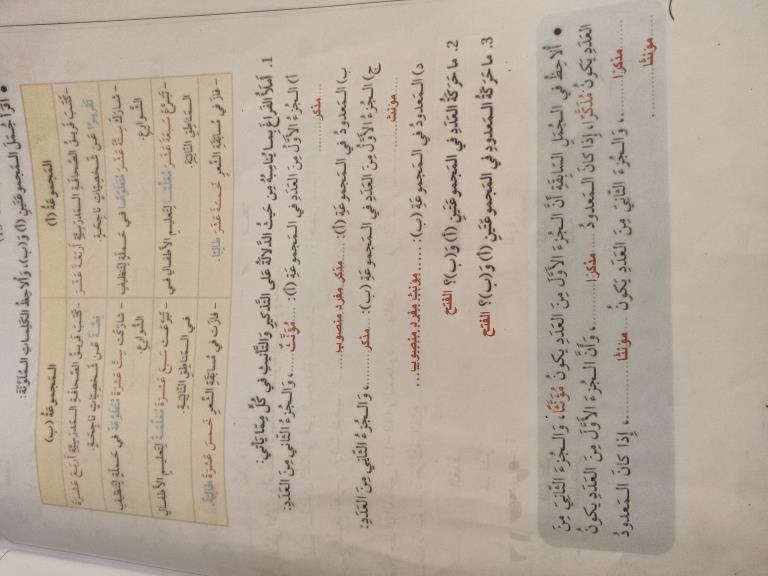 • اقرأ جُمَلَ المَجموعَتَيْنِ (أ) وَ(ب)، وَأُلاحِظُ الكَلِماتِ المُلَوَّنَةَ:
المَجموعَةُ (أ)
المَجموعَةُ (ب)
- كَتَبَ فَريقُ الصَّحافَةِ المَدرَسِيَّةِ أَربَعَةَ عَشَرَ
تَقريرًا عَن شَخصِيّاتٍ ناجِحَةٍ.
- كَتَبَ فَريقُ الصَّحافَةِ المَدرَسِيَّةِ أَربَعَ عَشرَةَ
قِصَّةً عَن شَخصِيّاتٍ ناجِحَةٍ.
- شارَكَ سِتَّةَ عَشَرَ مُتَطَوِّعًا في حَملَةِ تَنظيفِ
الشَّوارِعِ.
- شارَكَت سِتَّ عَشرَةَ مُتَطَوِّعَةً في حَملَةِ تَنظيفِ
الشَّوارِعِ.
- تَبَرَّعَ سَبعَةَ عَشَرَ مُعَلِّمًا لِتَعليمِ الأَطفالِ في
المَناطِقِ النّائِيَةِ.
- تَبَرَّعَت سَبعَ عَشرَةَ مُعَلِّمَةً لِتَعليمِ الأَطفالِ
في المَناطِقِ النّائِيَةِ.
- فازَ في مُسابَقَةِ الشِّعرِ خَمسَةَ عَشَرَ طالِبًا.
- فازَت في مُسابَقَةِ الشِّعرِ خَمسَ عَشرَةَ طالِبَةً.
1. أَملَأُ الفَراغَ بِما يُناسِبُهُ مِن حَيثُ الدَّلالَةُ عَلى التَّذكيرِ وَالتَّأنيثِ في كُلٍّ مِمّا يَأتي:
أ) الجُزءُ الأَوَّلُ مِنَ العَدَدِ في المَجموعَةِ (أ): ....مؤنَّث....، وَالجُزءُ الثّاني مِنَ العَدَدِ:
....مذكر....
ب) المَعدودُ في المَجموعَةِ (أ): ....مذكر مفرد منصوب....
ج) الجُزءُ الأَوَّلُ مِنَ العَدَدِ في المَجموعَةِ (ب): ....مذكر....، وَالجُزءُ الثّاني مِنَ العَدَدِ:
....مؤنث....
د) المَعدودُ في المَجموعَةِ (ب): ....مؤنث مفرد منصوب....
2. ما حَرَكَةُ العَدَدِ في المَجموعَتَيْنِ (أ) وَ(ب)؟ الفتح
3. ما حَرَكَةُ المَعدودِ في المَجموعَتَيْنِ (أ) وَ(ب)؟ الفتح
• أُلاحِظُ في الجُمَلِ السّابِقَةِ أَنَّ الجُزءَ الأَوَّلَ مِنَ العَدَدِ يَكونُ مُؤَنَّثًا، وَالجُزءَ الثّانِيَ مِنَ
العَدَدِ يَكونُ مُذَكَّرًا، إِذا كانَ المَعدودُ ....مذكرا....، وَأَنَّ الجُزءَ الأَوَّلَ مِنَ العَدَدِ يَكونُ
....مذكرا....، وَالجُزءَ الثّاني مِنَ العَدَدِ يَكونُ ....مؤنثا....، إِذا كانَ المَعدودُ
....مؤنثا....